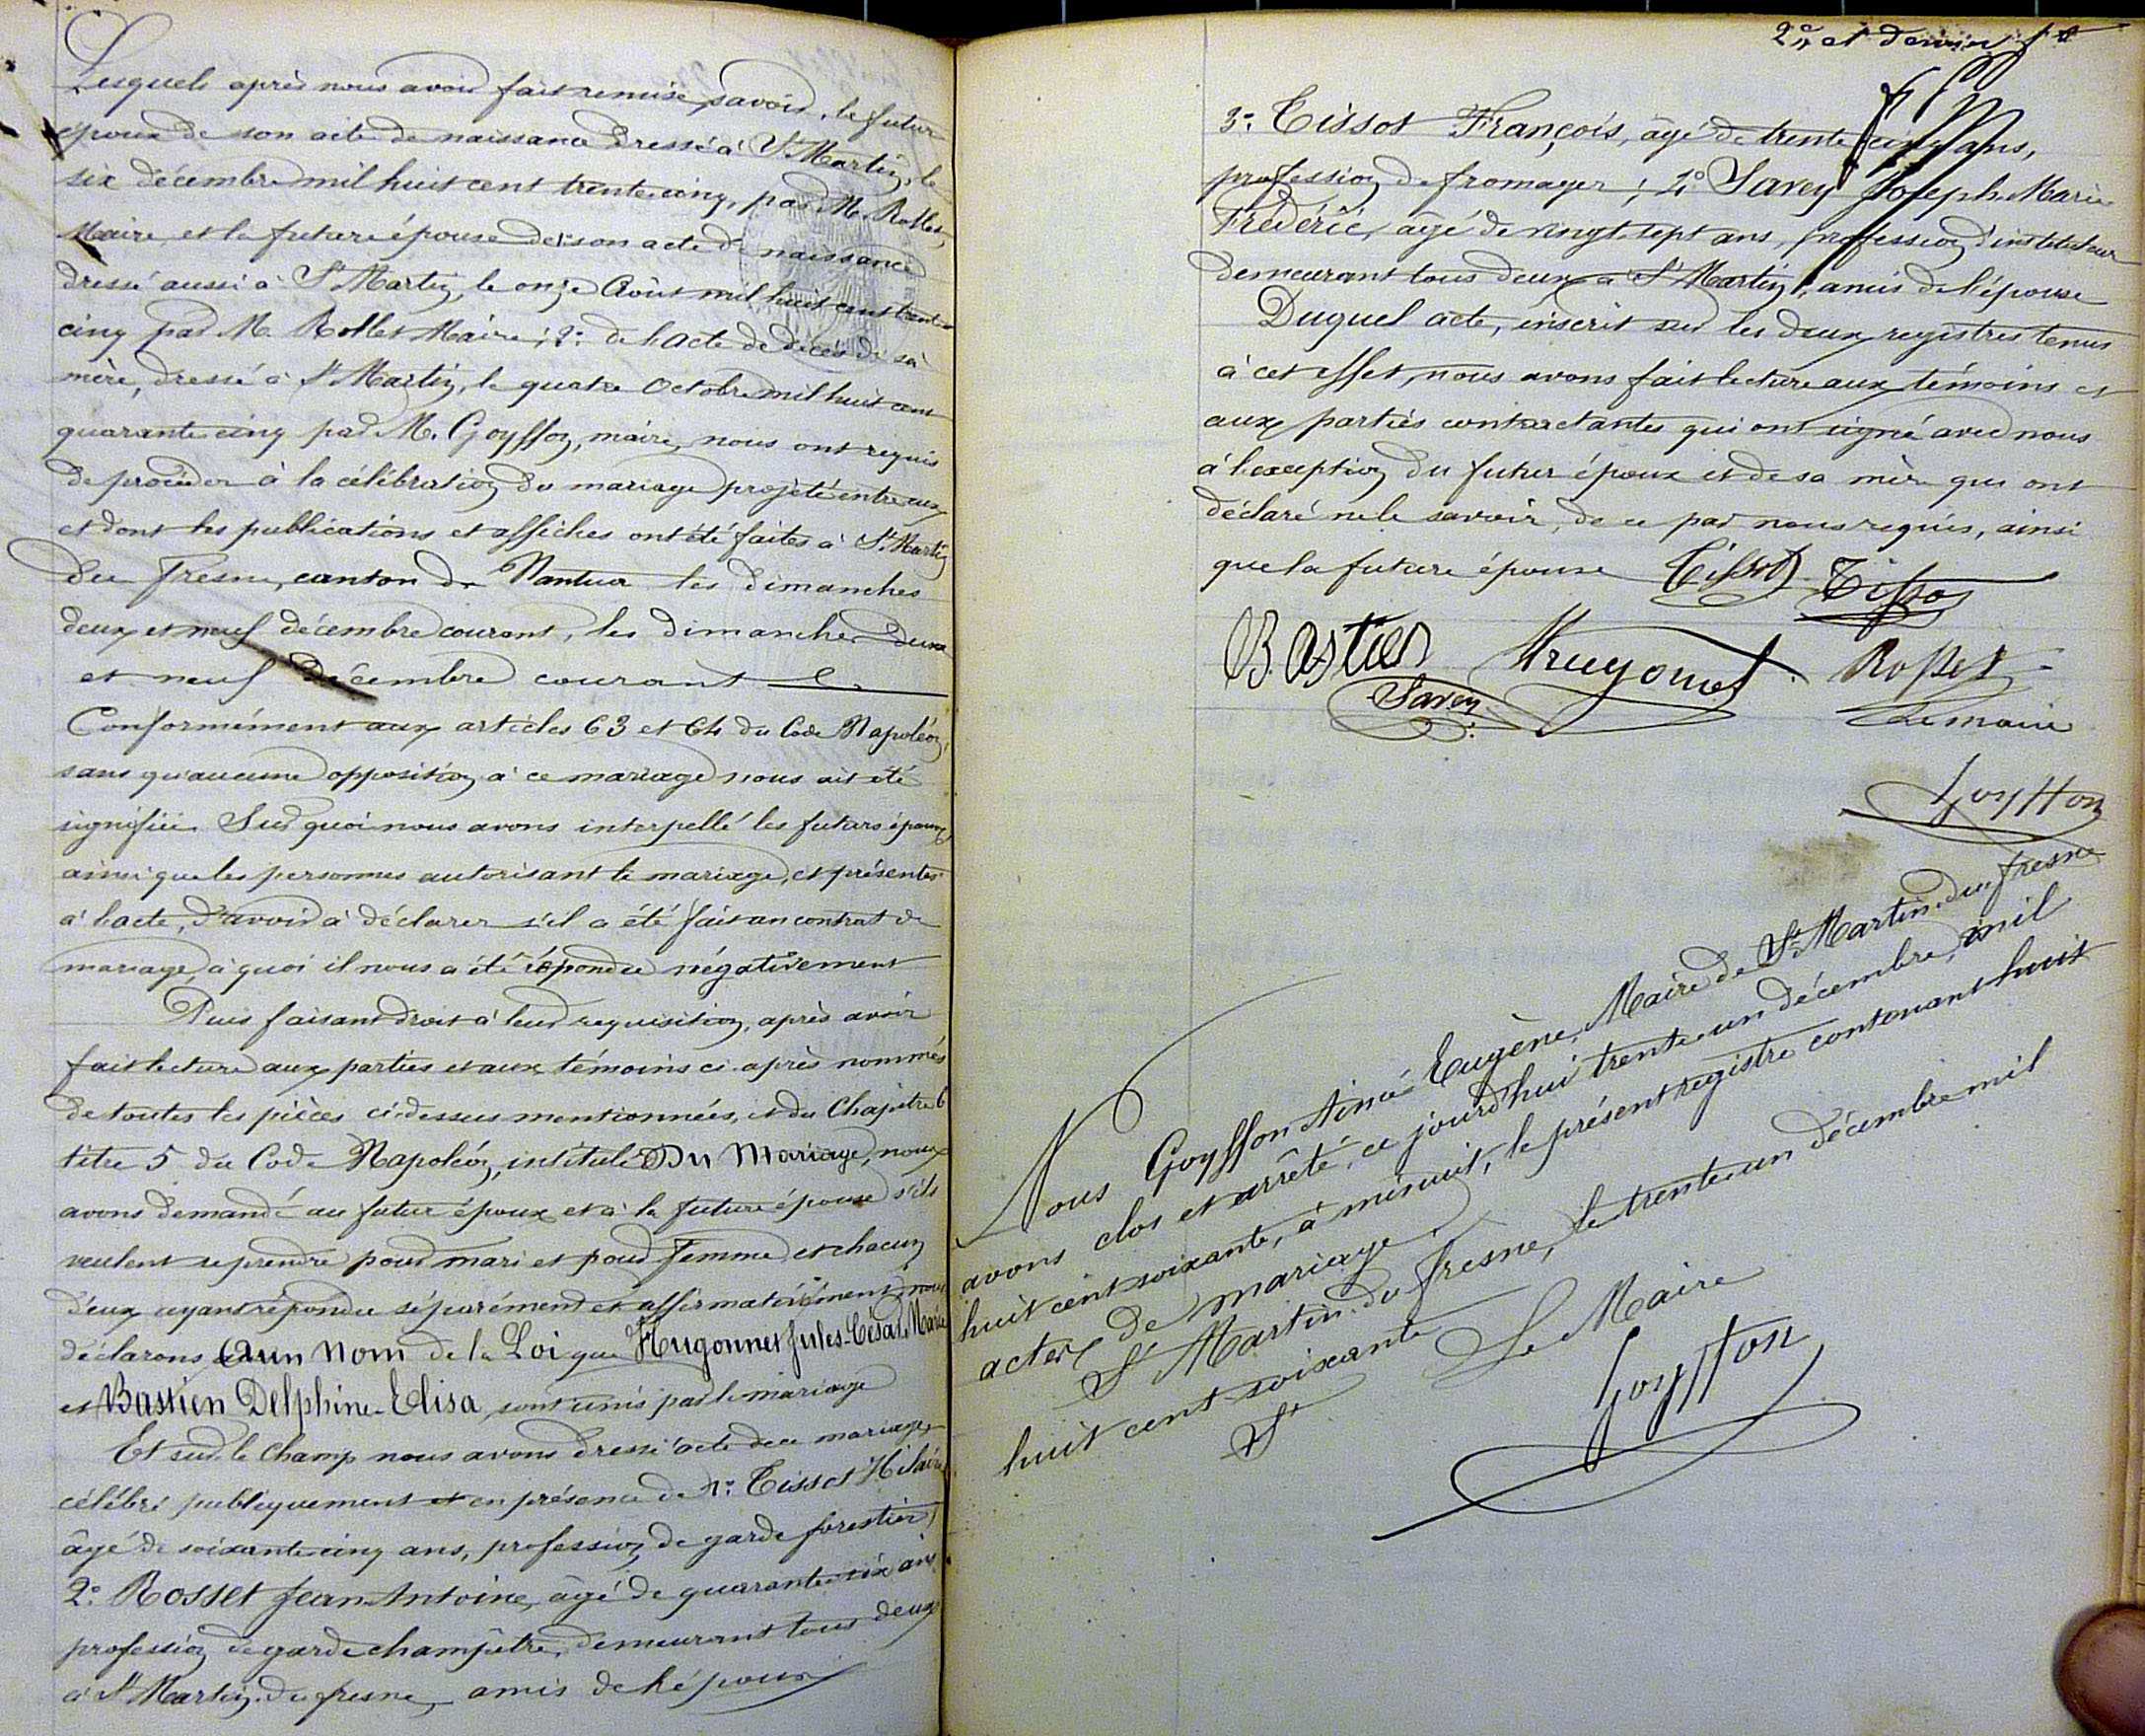 Lesquels après nous avoir fait remise, savoir, le futur
époux de son acte de naissance dressé à St Martin, le
six décembre mil huit cent trente cinq, par M. Rollet,
Maire, et la future épouse de 1° son acte de naissance
dressé aussi à St Martin, le onze Août mil huit cent trente
cinq par M. Rollet Maire; 2° de l'acte de décès de sa
mère, dressé à St Martin, le quatre Octobre mil huit cent
quarante cinq par M. Goyffon, maire, nous ont requis
de procéder à la célébration du mariage projeté entre eux
et dont les publications et affiches ont été faites à St Martin
du Fresne, canton de Nantua les dimanches
deux et neuf décembre courant, les dimanches deux
et neuf décembre courant
Conformément aux articles 63 et 64 du Code Napoléon,
sans qu'aucune opposition à ce mariage nous ait été
signifiée. Sur quoi nous avons interpellé les futurs époux,
ainsi que les personnes autorisant le mariage, et présentes
à l'acte, d'avoir à déclarer s'il a été fait un contrat de
mariage, à quoi il nous a été répondu négativement
Puis faisant droit à leur requisition, après avoir
fait lecture aux parties et aux témoins ci-après nommés
de toutes les pièces ci-dessus mentionnées, et du Chapitre 6
titre 5 du Code Napoléon, intitulé Du Mariage, nous
avons demandé au futur époux et à la future épouse s'ils
veulent se prendre pour mari et pour femme, et chacun
d'eux ayant répondu séparément et affirmativement, nous
déclarons au nom de la Loi que Hugonnet Jules-César-Marie
et Bastien Delphine-Elisa sont unis par le mariage
Et sur le champ nous avons dressé acte de ce mariage,
célébré publiquement et en présence de 1° Tissot Hilaire
âgé de soixante cinq ans, profession de garde forestier
2° Rosset Jean-Antoine, âgé de quarante six ans
profession de garde champêtre, demeurant tous deux
à St Martin-du-fresne, amis de l'époux
2e et dernier ft
3° Tissot François, âgé de trente cinq ans,
profession de fromager; 4° Savey Joseph Marie
Frédéric, âgé de vingt sept ans, profession d'instituteur
demeurant tous deux à St Martin, amis de l'épouse
Duquel acte, inscrit sur les deux registres tenus
à cet effet, nous avons fait lecture aux témoins et
aux parties contractantes qui ont signé avec nous
à l'exception du futur époux et de sa mère qui ont
déclaré ne le savoir, de ce par nous requis, ainsi
que la future épouse Tissot Tissot
Bastien Hugonnet Rosset
Savey Le maire
Goyffon
Nous Goyffon Aimé Eugène, Maire de St Martin-du-fresne
avons clos et arrêté, ce jourd'hui trente-un décembre, mil
huit cent soixante, à minuit, le présent registre contenant huit
actes de mariage.
St Martin-du-fresne, le trente-un décembre mil
huit cent soixante
St Le Maire
Goyffon